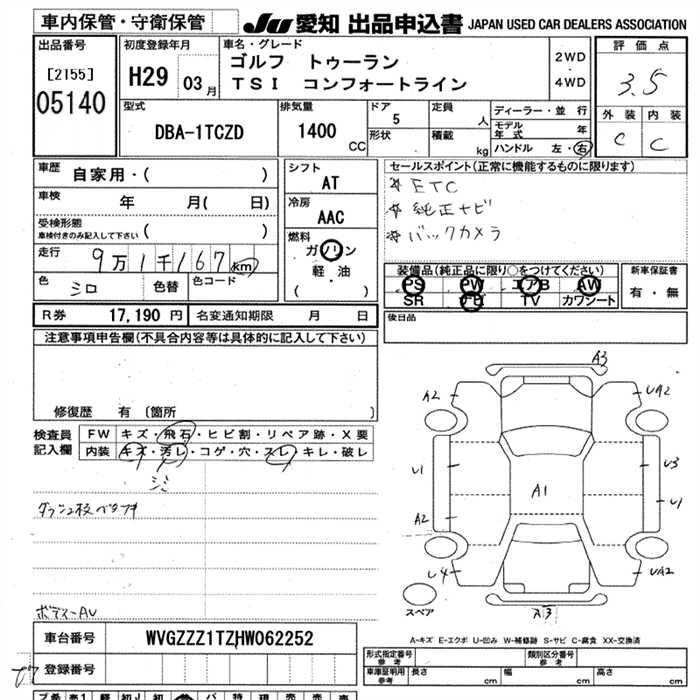 車内保管・守衛保管
JU 愛知 出品申込書 JAPAN USED CAR DEALERS ASSOCIATION
出品番号
[2155]
05140
初度登録年月
H29 03 月
車名・グレード
ゴルフ トゥーラン
TSI コンフォートライン
2WD
・
4WD
評価点
3.5
外装 内装
C C
型式
DBA-1TCZD
排気量
1400
CC
ドア
5
形状
定員
人
積載
kg
ディーラー・並行
モデル
年式 年
ハンドル 左・右
車歴
自家用・( )
車検
年 月( 日)
受検形態
車検付きのみ記入して下さい ( )
走行
9万1千167 km
色
シロ
色替
色コード
シフト
AT
冷房
AAC
燃料
ガソリン
軽・油
( )
セールスポイント(正常に機能するものに限ります)
☆ ETC
☆ 純正ナビ
☆ バックカメラ
装備品(純正品に限り○をつけてください)
PS PW エアB AW
SR ナビ TV カワシート
新車保証書
有・無
R券 17,190 円 名変通知期限 月 日
後日品
注意事項申告欄(不具合内容等は具体的に記入して下さい)
修復歴 有 〔箇所 〕
検査員
記入欄
FW キズ・飛石・ヒビ割・リペア跡・X要
内装 キズ・汚レ・コゲ・穴・スレ・キレ・破レ
シミ
ボディーAU
A3
A2 UA2
U1 U3
A1 U1
A2
U4 UA2
スペア
A-キズ E-エクボ U-凹み W-補修跡 S-サビ C-腐食 XX-交換済
車台番号 WVGZZZ1TZHW062252
登録番号
形式指定番号
参考
類別区分番号
参考
車庫証明用
参考
長さ cm 幅 cm 高さ cm